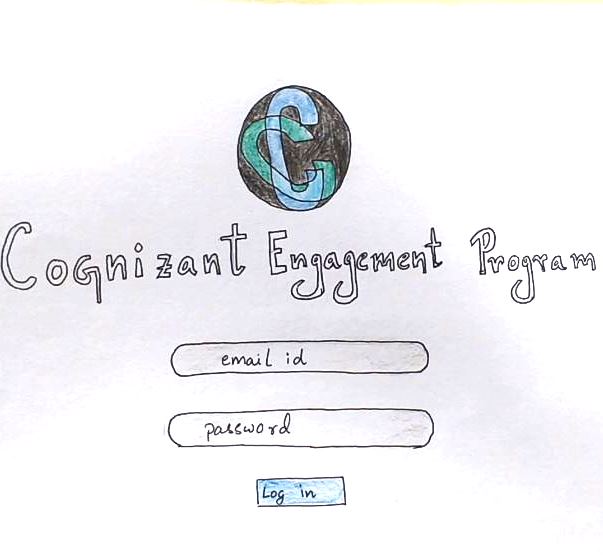 Cognizant Engagement Program
email id
password
Log in